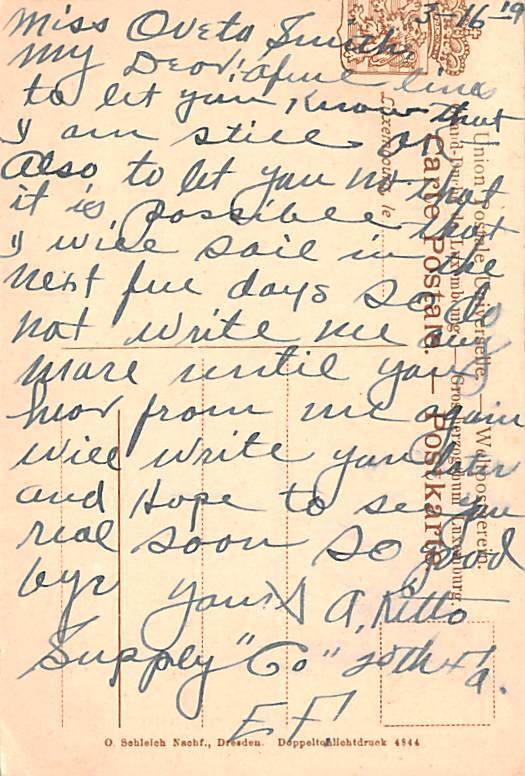 3-16-19
Miss Oveta Smith
My Dear: a fue lines
to let you know that
I am still O.K.
Also to let you no that
it is possibee that
I will sail in the
next fue days so do
not write me any
more until you
hear from me again
will write you later
and Hope to see you
real soon so good
bye Yours A. Kitto
Supply "Co" 20th F.A.
E F
Carte Postale. — Postkarte.
Union Postale Universelle. — Weltpostverein.
Grand-Duché de Luxembourg. — Grossherzogtum Luxemburg.
Luxembourg, le
O. Schleich Nachf., Dresden. Doppeltonlichtdruck 4844